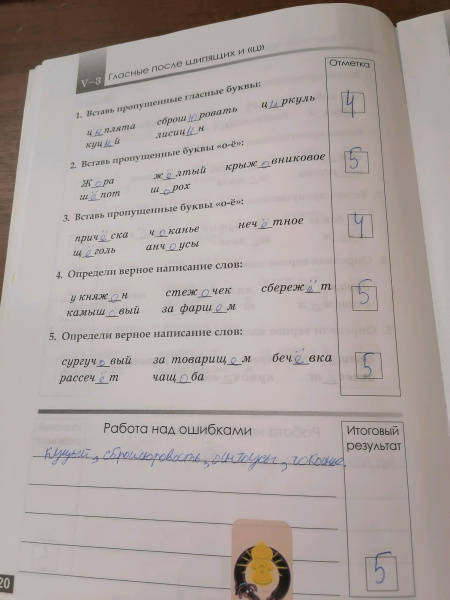 V–3 Гласные после шипящих и «ц»
Отметка
1. Вставь пропущенные гласные буквы:
цыплята сброшюровать циркуль
куцый лисицын
4
2. Вставь пропущенные буквы «о-ё»:
Жора жёлтый крыжовниковое
шёпот шорох
5
3. Вставь пропущенные буквы «о-ё»:
причёска чоканье нечётное
щёголь анчоусы
4
4. Определи верное написание слов:
у княжон стежочек сбережёт
камышовый за фаршем
5
5. Определи верное написание слов:
сургучовый за товарищем бечёвка
рассечёт чащоба
5
Работа над ошибками
Итоговый
результат
куцый, сброшюровать, анчоусы, чоканье
5
20